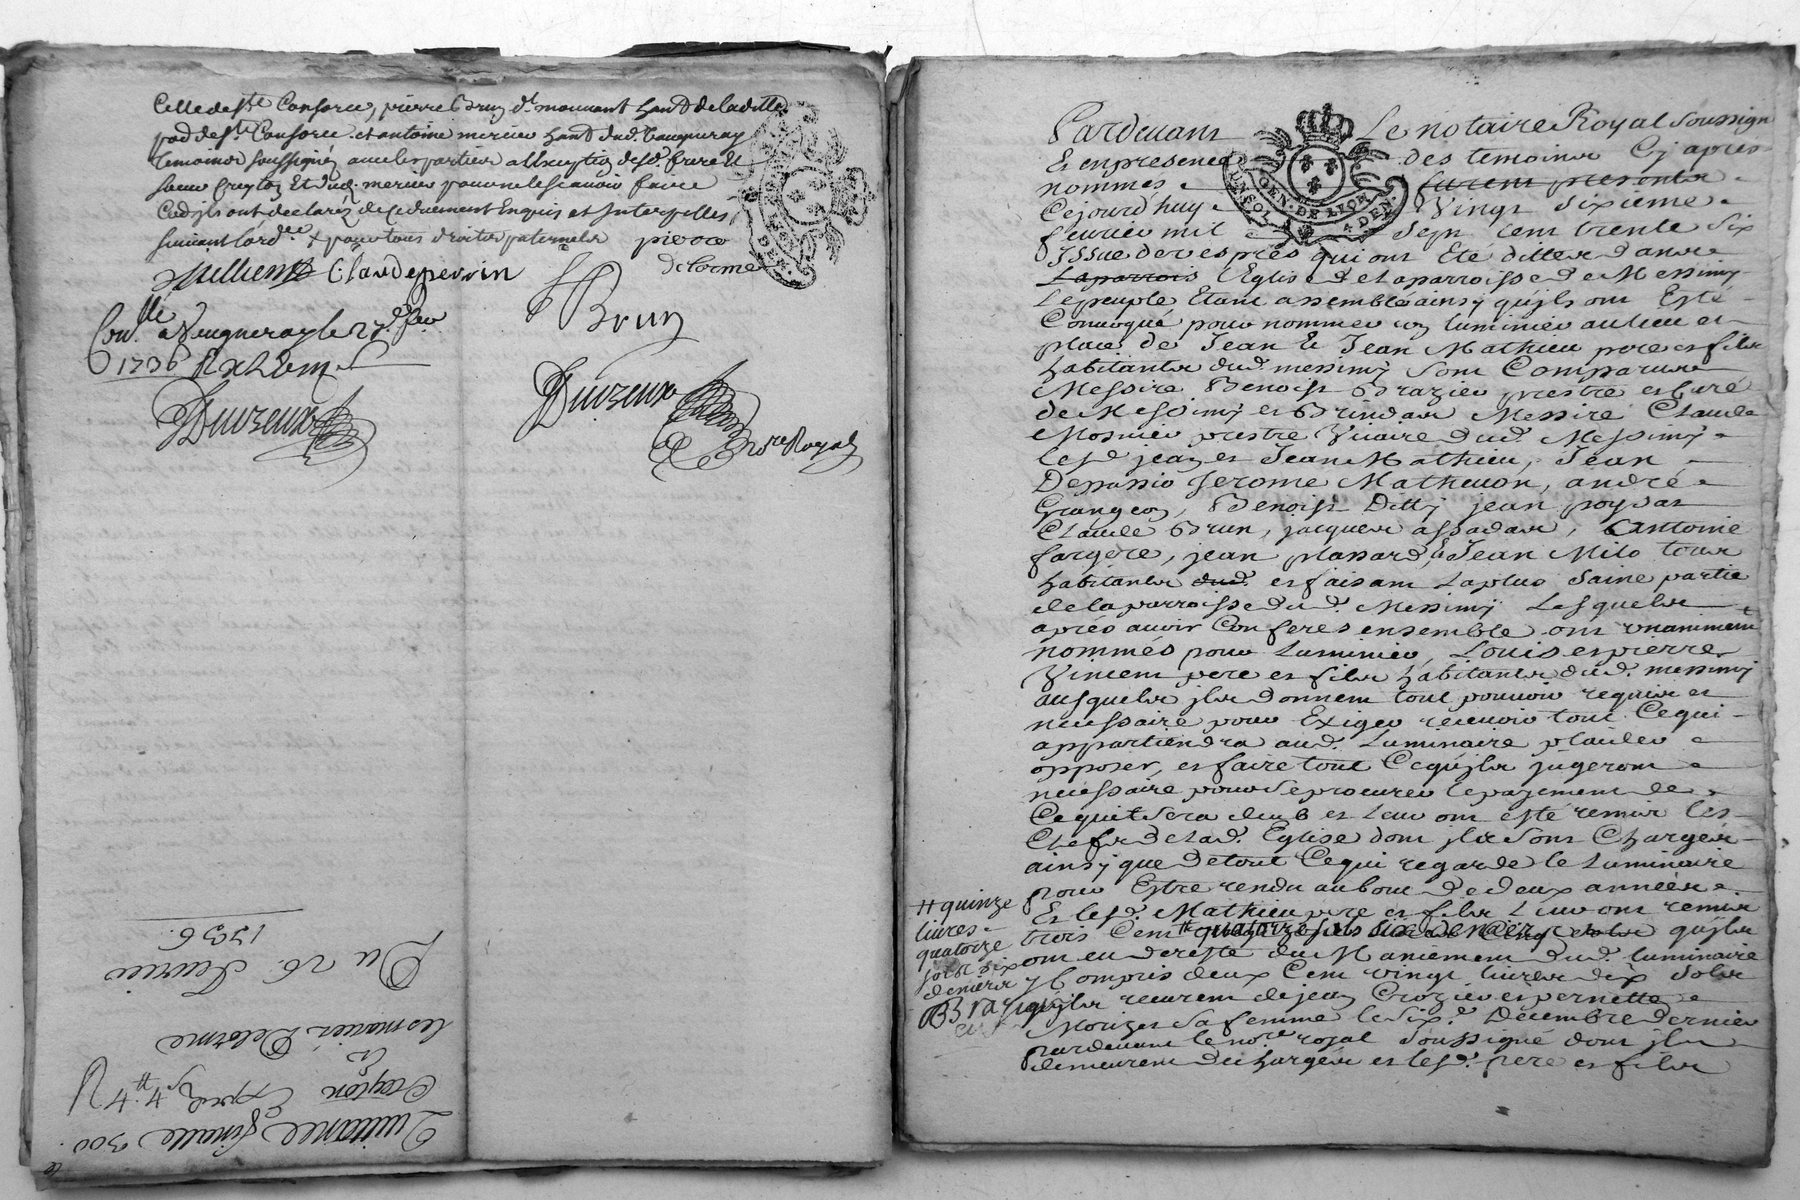 Celle de Ste Consorce, pierre Brun dt mornant habt de ladite
parr de Ste Consorce et antoine mercier habt dud. vaugneray
temoins soussignéz avec les parties a l'exception desd. frere et
soeur Creyton Et dud. mercier pour ne le scavoir faire
ainsy qu'ils ont declaréz de ce duement Enquis et Interpelles
suivant l'ordce & pour tous droits paternels pierre
delorme
Claude perrin
Brun
Conllé a Vaugneray le 27e fev
1736 R
Duvzeux
Duvzeux
Nore Royal
Quittance finalle 300
Creyton
les mariez Delorme
Du 26. fevrier
1736.
Pardevant Le notaire Royal soussign
Et en presence des temoins Cy apres
nommés furent presents
Cejourd'huy Vingt sixieme
fevrier mil sept cent trente six
UN SOL GEN. DE LYON 4 DEN.
Issue de vespres qui ont Eté dittes dans
La parrois L'Eglise de La parroisse de Messimy
Le peuple Etant assemblé ainsy qu'ils ont Esté
Convoqué pour nommer un luminier au lieu et
place de Jean & Jean Mathieu pere et fils
habitants dud. messimy sont Comparus
Messire Benoist Brazier prestre et Curé
de Messimy et Brindas Messire Claude
Mosnier prestre Vicaire dud. Messimy
lesd. jean et Jean Mathieu, Jean
Depassio Jerome Mathevon, andré
Grangeon, Benoist Ditty jean poydas
Claude Brun, jacques assadas, Antoine
fargere, jean plassard, & Jean Milo tous
habitants dud. et faisant La plus saine partie
de la parroisse dud. Messimy Lesquels
aprés avoir Conferes ensemble ont unanimemt
nommés pour Luminier, Louis et pierre
Vincent pere et fils habitants dud. messimy
ausquels ils donnent tout pouvoir requis et
necessaire pour Exiger recevoir tout Cequi
appartiendra aud. Luminaire plaider
opposer, et faire tout Cequ'ils jugeront
necessaire pour se procurer le payement de
Cequi sera dub et Leur ont esté remis les
Clefs de lad. Eglise dont ils sont Chargés
ainsy que de tout Cequi regarde le Luminaire
pour Estre rendu au bout de deux années
Et lesd. Mathieu pere et fils Leur ont remis
trois Cent quatorze sols six deniers qu'ils
ont eu de reste du Maniement dud. luminaire
y Compris deux Cent vingt livres dix sols
qu'ils recurent de jean Crozier et pernette
Morizot sa femme le six.e Décembre dernier
pardevant le nore royal soussigné dont ils
demeurent dechargés et lesd. pere et fils
# quinze
livres
quatorze
sols six
deniers
Brazier
curé